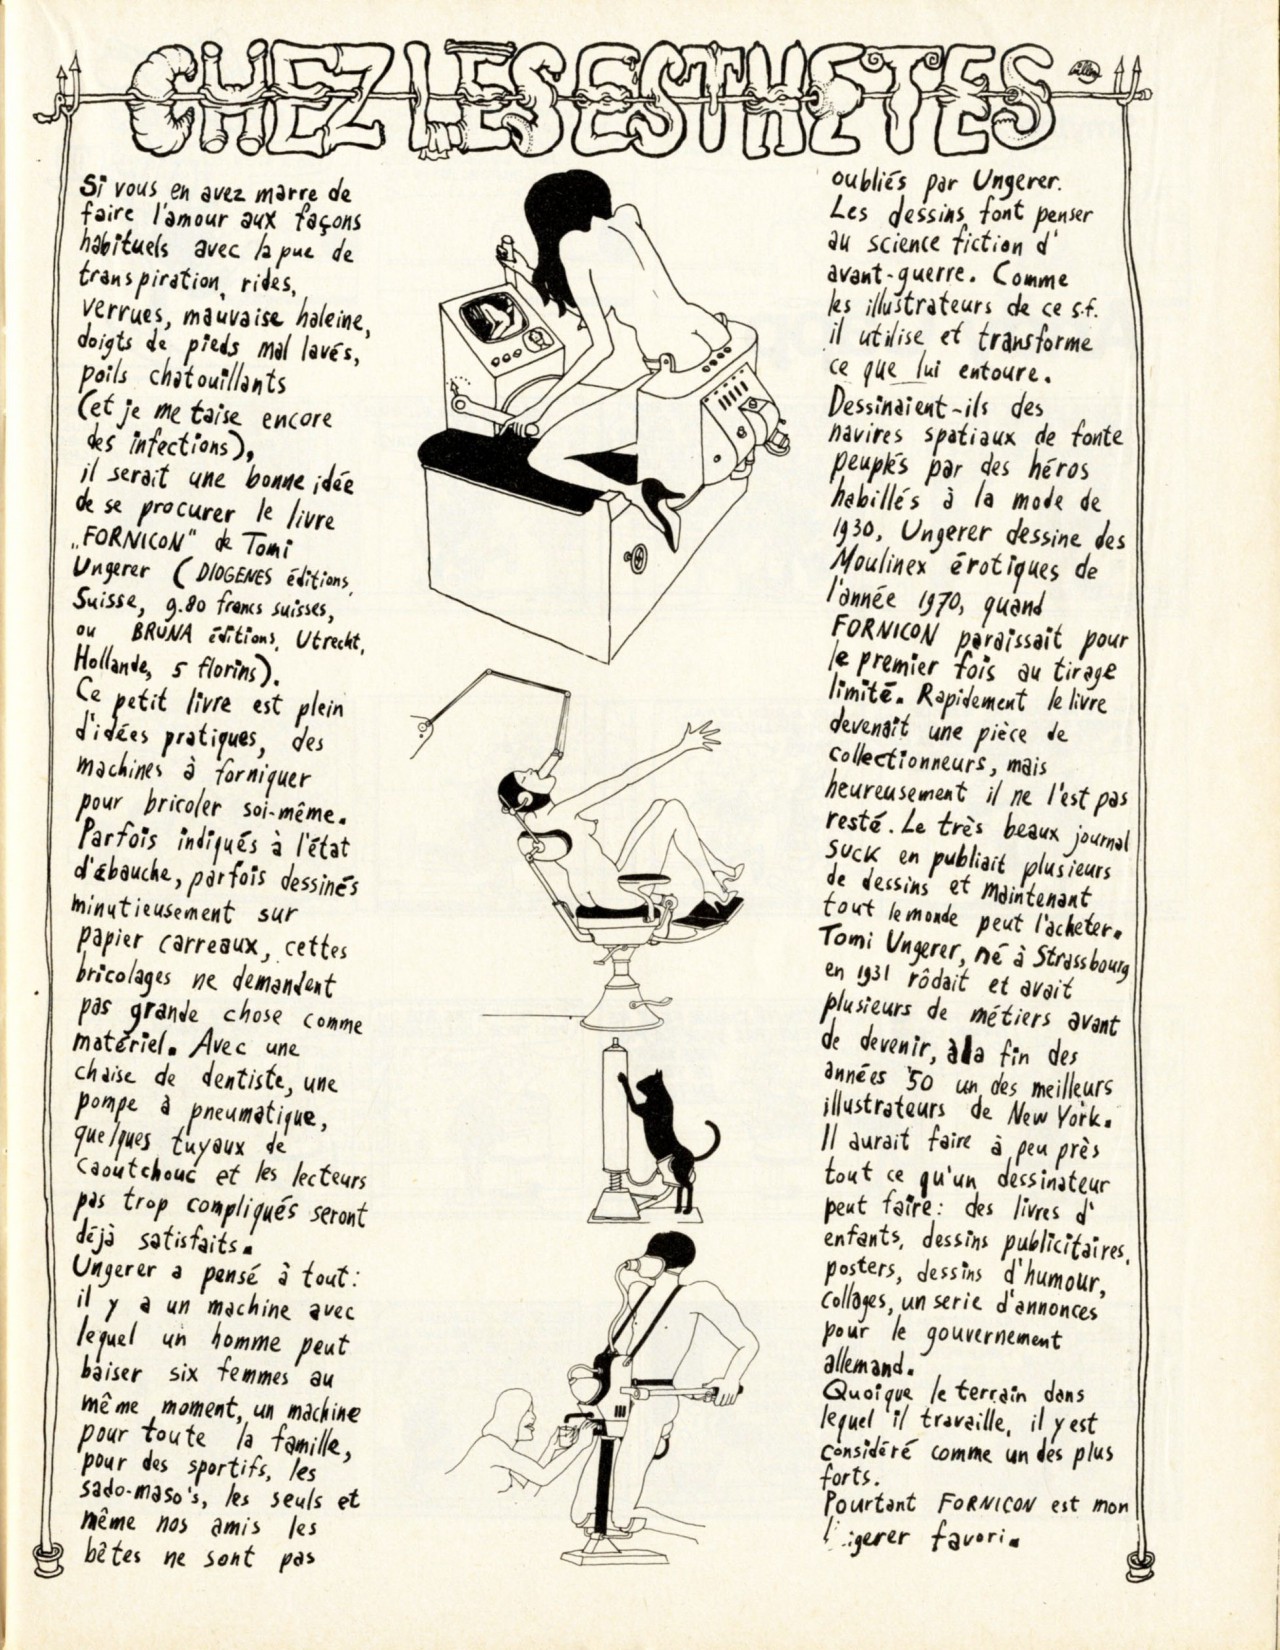 CHEZ LES ESTHETES
Si vous en avez marre de
faire l'amour aux façons
habituels avec la pue de
transpiration, rides,
verrues, mauvaise haleine,
doigts de pieds mal lavés,
poils chatouillants
(et je me taise encore
des infections),
il serait une bonne idée
de se procurer le livre
„FORNICON" de Tomi
Ungerer (DIOGENES éditions,
Suisse, 9.80 francs suisses,
ou BRUNA éditions, Utrecht,
Hollande, 5 florins).
Ce petit livre est plein
d'idées pratiques, des
machines à forniquer
pour bricoler soi-même.
Parfois indiqués à l'état
d'ébauche, parfois dessinés
minutieusement sur
papier carreaux, cettes
bricolages ne demandent
pas grande chose comme
matériel. Avec une
chaise de dentiste, une
pompe à pneumatique,
quelques tuyaux de
caoutchouc et les lecteurs
pas trop compliqués seront
déjà satisfaits.
Ungerer a pensé à tout:
il y a un machine avec
lequel un homme peut
baiser six femmes au
même moment, un machine
pour toute la famille,
pour des sportifs, les
sado-maso's, les seuls et
même nos amis les
bêtes ne sont pas
oubliés par Ungerer.
Les dessins font penser
au science fiction d'
avant-guerre. Comme
les illustrateurs de ce s.f.
il utilise et transforme
ce que lui entoure.
Dessinaient-ils des
navires spatiaux de fonte
peuplés par des héros
habillés à la mode de
1930, Ungerer dessine des
Moulinex érotiques de
l'année 1970, quand
FORNICON paraissait pour
le premier fois au tirage
limité. Rapidement le livre
devenait une pièce de
collectionneurs, mais
heureusement il ne l'est pas
resté. Le très beaux journal
SUCK en publiait plusieurs
de dessins et maintenant
tout le monde peut l'acheter.
Tomi Ungerer, né à Strassbourg
en 1931 rôdait et avait
plusieurs de métiers avant
de devenir, à la fin des
années '50 un des meilleurs
illustrateurs de New York.
Il aurait faire à peu près
tout ce qu'un dessinateur
peut faire: des livres d'
enfants, dessins publicitaires,
posters, dessins d'humour,
collages, un serie d'annonces
pour le gouvernement
allemand.
Quoique le terrain dans
lequel il travaille, il y est
considéré comme un des plus
forts.
Pourtant FORNICON est mon
favori.